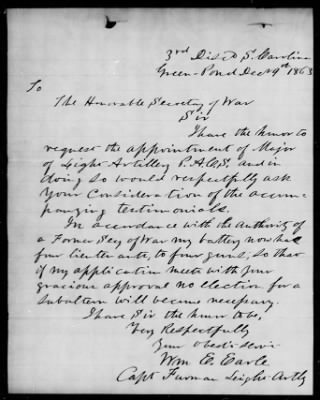 3rd Dist So Carolina
Green Pond Dec 9th 1863
To
The Honorable Secretary of War
Sir
I have the honor to
request the appointment of Major
of Light Artillery P.A.C.S. and in
doing so would respectfully ask
Your Consideration of the accom-
panying testimonials.
In accordance with the Authority of
a Former Secy of War my battery now has
four lieutenants, to four guns, so that
if my application meets with your
gracious approval no election for a
subaltern will become necessary.
I have Sir the honor to be,
Very Respectfully
Your obedt servt
Wm E. Earle
Capt Furman Light Artly